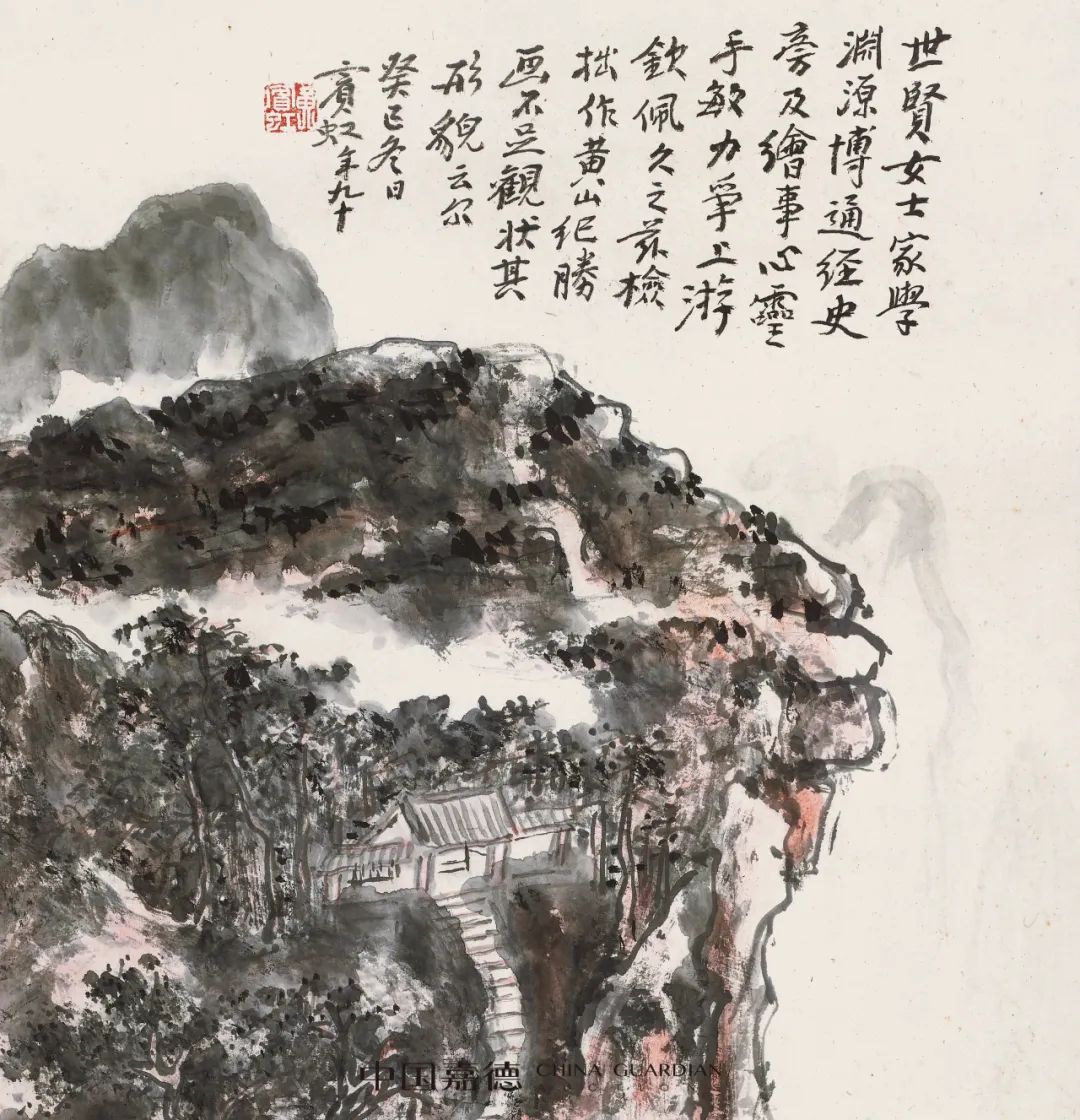 世賢女士家學
淵源博通經史
旁及繪事心靈
手敏力爭上游
欽佩久之茲檢
拙作黃山紀勝
画不足觀狀其
形貌云尔
癸巳冬日
賓虹年九十
黃賓虹
中国嘉德 CHINA GUARDIAN